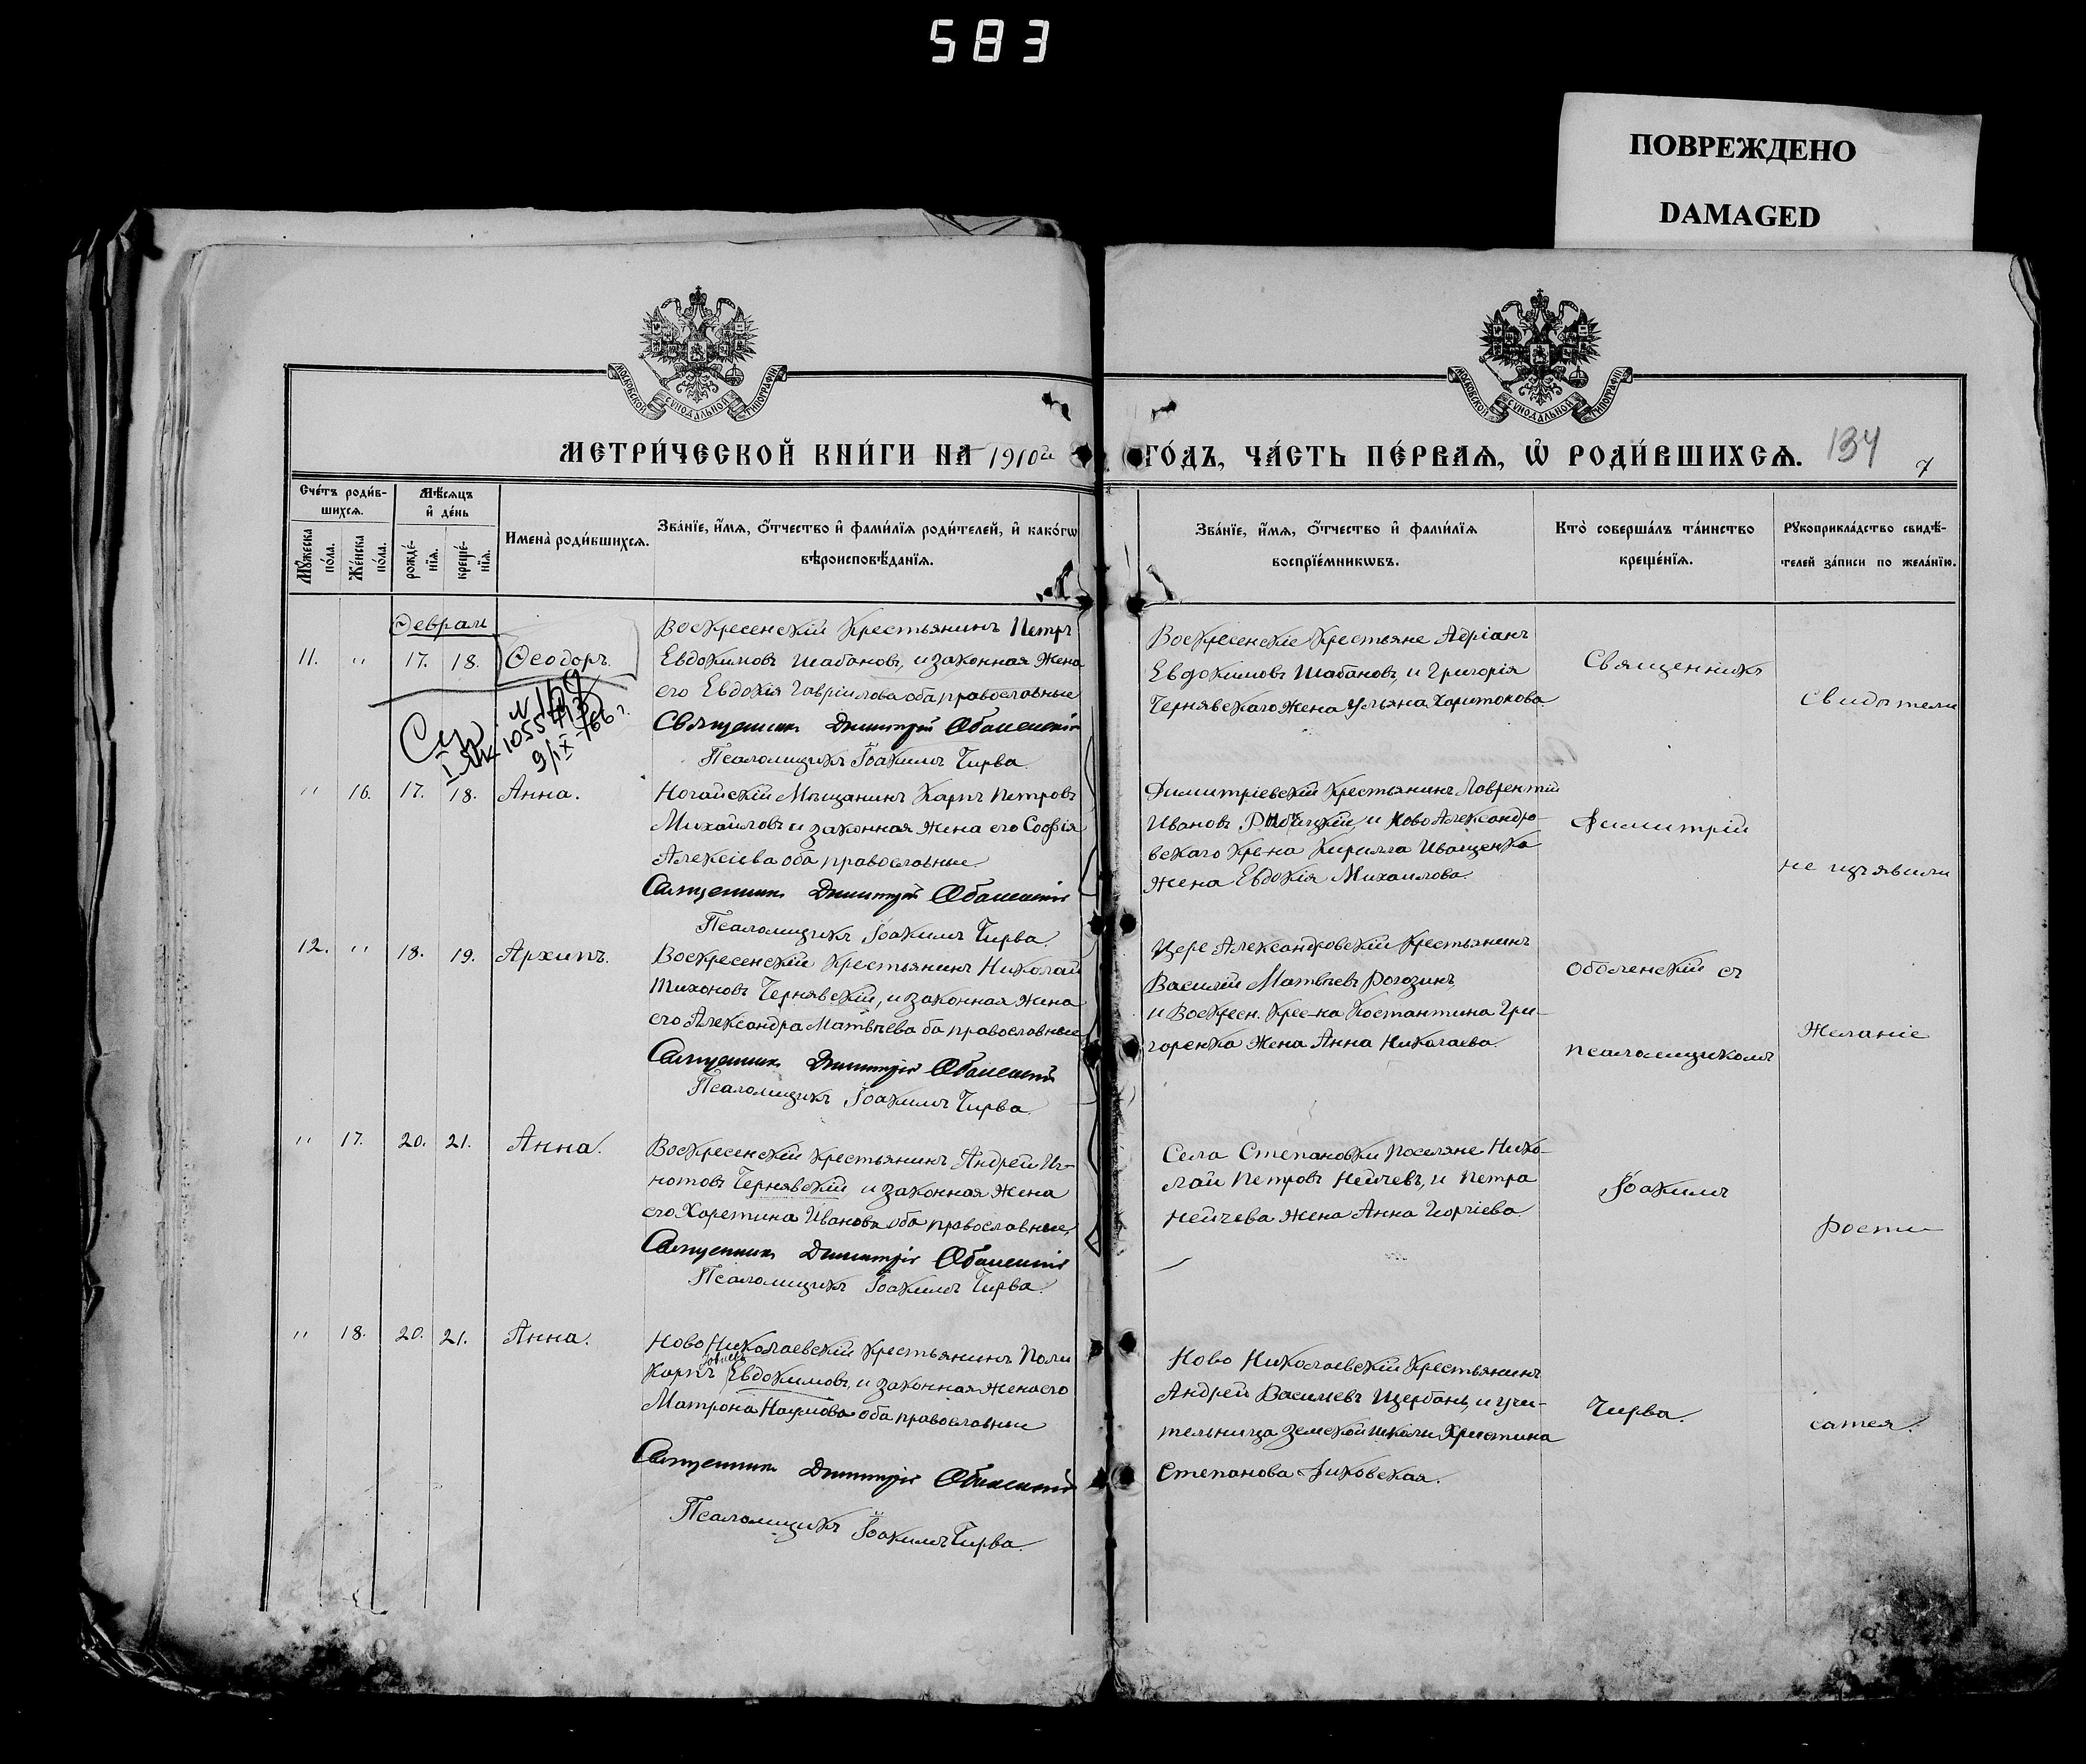 583
ПОВРЕЖДЕНО
DAMAGED
МОСКОВСКОЙ СѴНОДАЛЬНОЙ ТИПОГРАФІИ
МОСКОВСКОЙ СѴНОДАЛЬНОЙ ТИПОГРАФІИ
МЕТРИ́ЧЕСКОЙ КНИ́ГИ НА 1910й ГО́ДЪ, ЧА́СТЬ ПЕ́РВАѦ, Ѡ҆ РОДИ́ВШИХСѦ. 134
7
Сче́тъ роди́вшихсѧ.
Мѹ́жеска по́ла.
Же́нска по́ла.
Мѣ́сяцъ и҆ де́нь
рожде́нїѧ.
креще́нїѧ.
Имена̀ роди́вшихсѧ.
Зва́нїе, и҆́мѧ, ѻ҆́тчество и҆ фами́лїѧ роди́телей, и҆ како́гѡ
вѣроисповѣ́данїѧ.
Зва́нїе, и҆́мѧ, ѻ҆́тчество и҆ фами́лїѧ
воспрїе́мникѡвъ.
Кто̀ соверша́лъ та́инство
креще́нїѧ.
Рѹкоприкла́дство свидѣ́-
телей за́писи по жела́нїю.
Февраль
11. " 17. 18. Ѳеодоръ.
Воскресенскій крестьянинъ Петръ
Евдокимовъ Шабановъ, и законная жена
его Евдокія Гавріилова оба православные
Священникъ Димитрій Оболенскій
Псаломщикъ Іоакимъ Чирва.
Воскресенскіе крестьяне Адріанъ
Евдокимовъ Шабановъ, и Григорія
Чернявскаго жена Ульяна Харитонова
9/IX-66 г.
" 16. 17. 18. Анна.
Ногайскій Мѣщанинъ Карпъ Петровъ
Михайловъ и законная жена его Софія
Алексіева оба православные.
Священникъ Димитрій Оболенскій
Псаломщикъ Іоакимъ Чирва.
Димитріевскій крестьянинъ Лаврентій
Ивановъ и Ново Александро-
вскаго кре-на Кирилла Иващенка
жена Евдокія Михаилова.
12. " 18. 19. Архипъ.
Воскресенскій крестьянинъ Николай
Тихоновъ Чернявскій, и законная жена
его Александра Матвѣева оба православные
Священникъ Димитрій Оболенскій
Псаломщикъ Іоакимъ Чирва.
Цере Александровскій крестьянинъ
Василій Матвѣевъ Рогозинъ,
и Воскресн. крес-на Костантина Гри-
горенка жена Анна Николаева.
" 17. 20. 21. Анна.
Воскресенскій крестьянинъ Андрей Иг-
натовъ Чернявскій и законная жена
его Харетина Иванова оба православные,
Священникъ Димитрій Оболенскій
Псаломщикъ Іоакимъ Чирва.
Села Степановки Поселяне Нико-
лай Петровъ Нейчевъ, и Петра
Нейчева жена Анна Георгіева.
" 18. 20. 21. Анна.
Ново Николаевскій крестьянинъ Поли
карпъ Евдокимовъ, и законная жена его
Матрона Наумова оба православные
Священникъ Димитрій Оболенскій
Псаломщикъ Іоакимъ Чирва.
Ново Николаевскій крестьянинъ
Андрей Васильевъ Щербань, и учи-
тельница земской школы Христина
Степанова Диковская.
Священникъ
Димитрій
Оболенскій съ
псаломщикомъ
Іоакимъ
Чирва.
Свидѣтели
не изъявили
Желаніе
роспи
сатся.